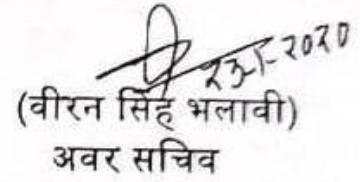 23-1-2020
(वीरन सिंह भलावी)
अवर सचिव